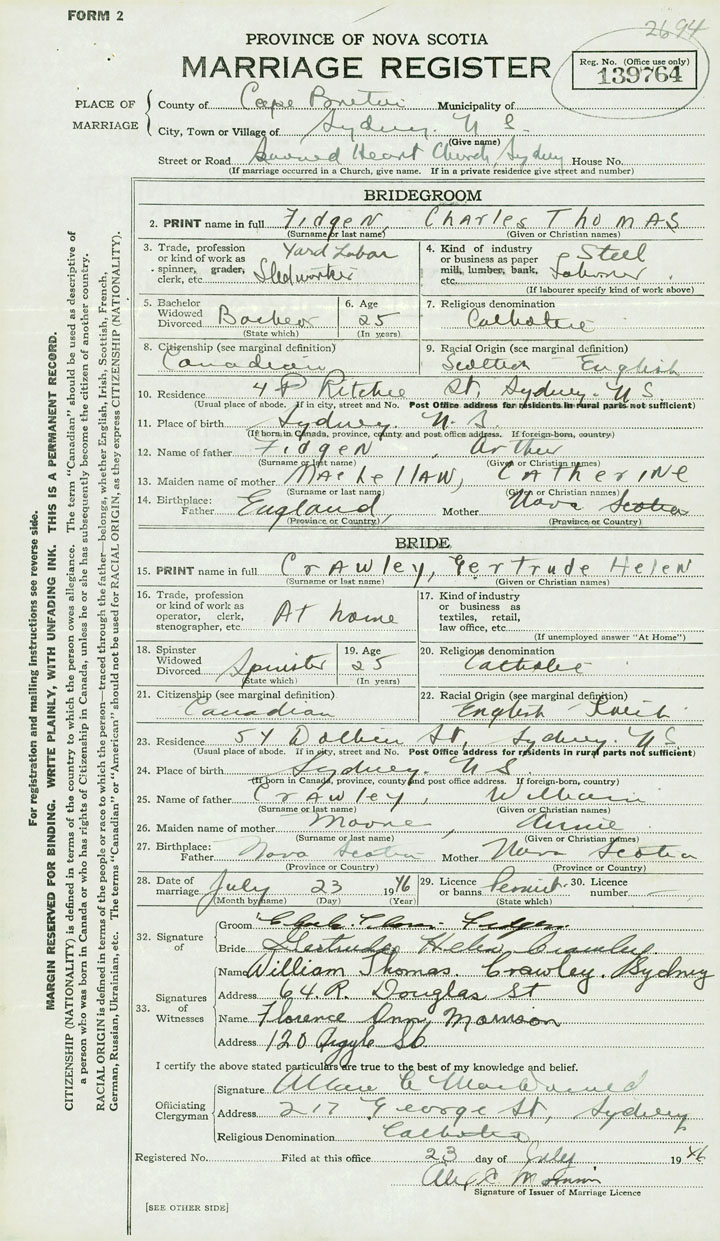 FORM 2
2694
PROVINCE OF NOVA SCOTIA
MARRIAGE REGISTER
Reg. No. (Office use only)
139764
PLACE OF MARRIAGE
County of Cape Breton Municipality of
City, Town or Village of Sydney. N S.
(Give name)
Street or Road Sacred Heart Church, Sydney House No.
(If marriage occurred in a Church, give name. If in a private residence give street and number)
BRIDEGROOM
2. PRINT name in full Fidgen, Charles Thomas
(Surname or last name) (Given or Christian names)
3. Trade, profession or kind of work as spinner, grader, clerk, etc. Yard Labor
4. Kind of industry or business as paper mill, lumber, bank, etc. Steel Labourer
(If labourer specify kind of work above)
5. Bachelor Widowed Divorced
(State which)
6. Age 25
(In years)
7. Religious denomination Catholic
8. Citizenship (see marginal definition) Canadian
9. Racial Origin (see marginal definition) Scottish English
10. Residence Ritchie St, Sydney. N S.
(Usual place of abode. If in city, street and No. Post Office address for residents in rural parts not sufficient)
11. Place of birth Sydney. N. S.
(If born in Canada, province, county and post office address. If foreign-born, country)
12. Name of father Fidgen, Arthur
(Surname or last name) (Given or Christian names)
13. Maiden name of mother MacLellan, Catherine
(Surname or last name) (Given or Christian names)
14. Birthplace: Father England, Mother Nova Scotia
(Province or Country) (Province or Country)
BRIDE
15. PRINT name in full Crawley, Gertrude Helen
(Surname or last name) (Given or Christian names)
16. Trade, profession or kind of work as operator, clerk, stenographer, etc. At home
17. Kind of industry or business as textiles, retail, law office, etc.
(If unemployed answer "At Home")
18. Spinster Widowed Divorced Spinster
(State which)
19. Age 25
(In years)
20. Religious denomination Catholic
21. Citizenship (see marginal definition) Canadian
22. Racial Origin (see marginal definition) English
23. Residence 54 Dolbin St, Sydney. N S
(Usual place of abode. If in city, street and No. Post Office address for residents in rural parts not sufficient)
24. Place of birth Sydney. N S
(If born in Canada, province, county and post office address. If foreign-born, country)
25. Name of father Crawley, William
(Surname or last name) (Given or Christian names)
26. Maiden name of mother Moore, Annie
(Surname or last name) (Given or Christian names)
27. Birthplace: Father Nova Scotia Mother Nova Scotia
(Province or Country) (Province or Country)
28. Date of marriage July 23 1946
(Month by name) (Day) (Year)
29. Licence or banns
(State which)
30. Licence number
32. Signature of
Groom Fidgen
Bride Gertrude Helen Crawley
33. Signatures of Witnesses
Name William Thomas. Crawley. Sydney
Address 64. R. Douglas St
Name Florence Ann, Morrison
Address 120 Argyle St
I certify the above stated particulars are true to the best of my knowledge and belief.
Officiating Clergyman
Signature MacDonald
Address 217 George St, Sydney
Religious Denomination Catholic
Registered No. Filed at this office 23 day of July 1946
Signature of Issuer of Marriage Licence
[SEE OTHER SIDE]
For registration and mailing instructions see reverse side.
MARGIN RESERVED FOR BINDING. WRITE PLAINLY, WITH UNFADING INK. THIS IS A PERMANENT RECORD.
CITIZENSHIP (NATIONALITY) is defined in terms of the country to which the person owes allegiance. The term "Canadian" should be used as descriptive of
a person who was born in Canada or who has rights of Citizenship in Canada, unless he or she has subsequently become the citizen of another country.
RACIAL ORIGIN is defined in terms of the people or race to which the person—traced through the father—belongs, whether English, Irish, Scottish, French,
German, Russian, Ukrainian, etc. The terms "Canadian" or "American" should not be used for RACIAL ORIGIN, as they express CITIZENSHIP (NATIONALITY).